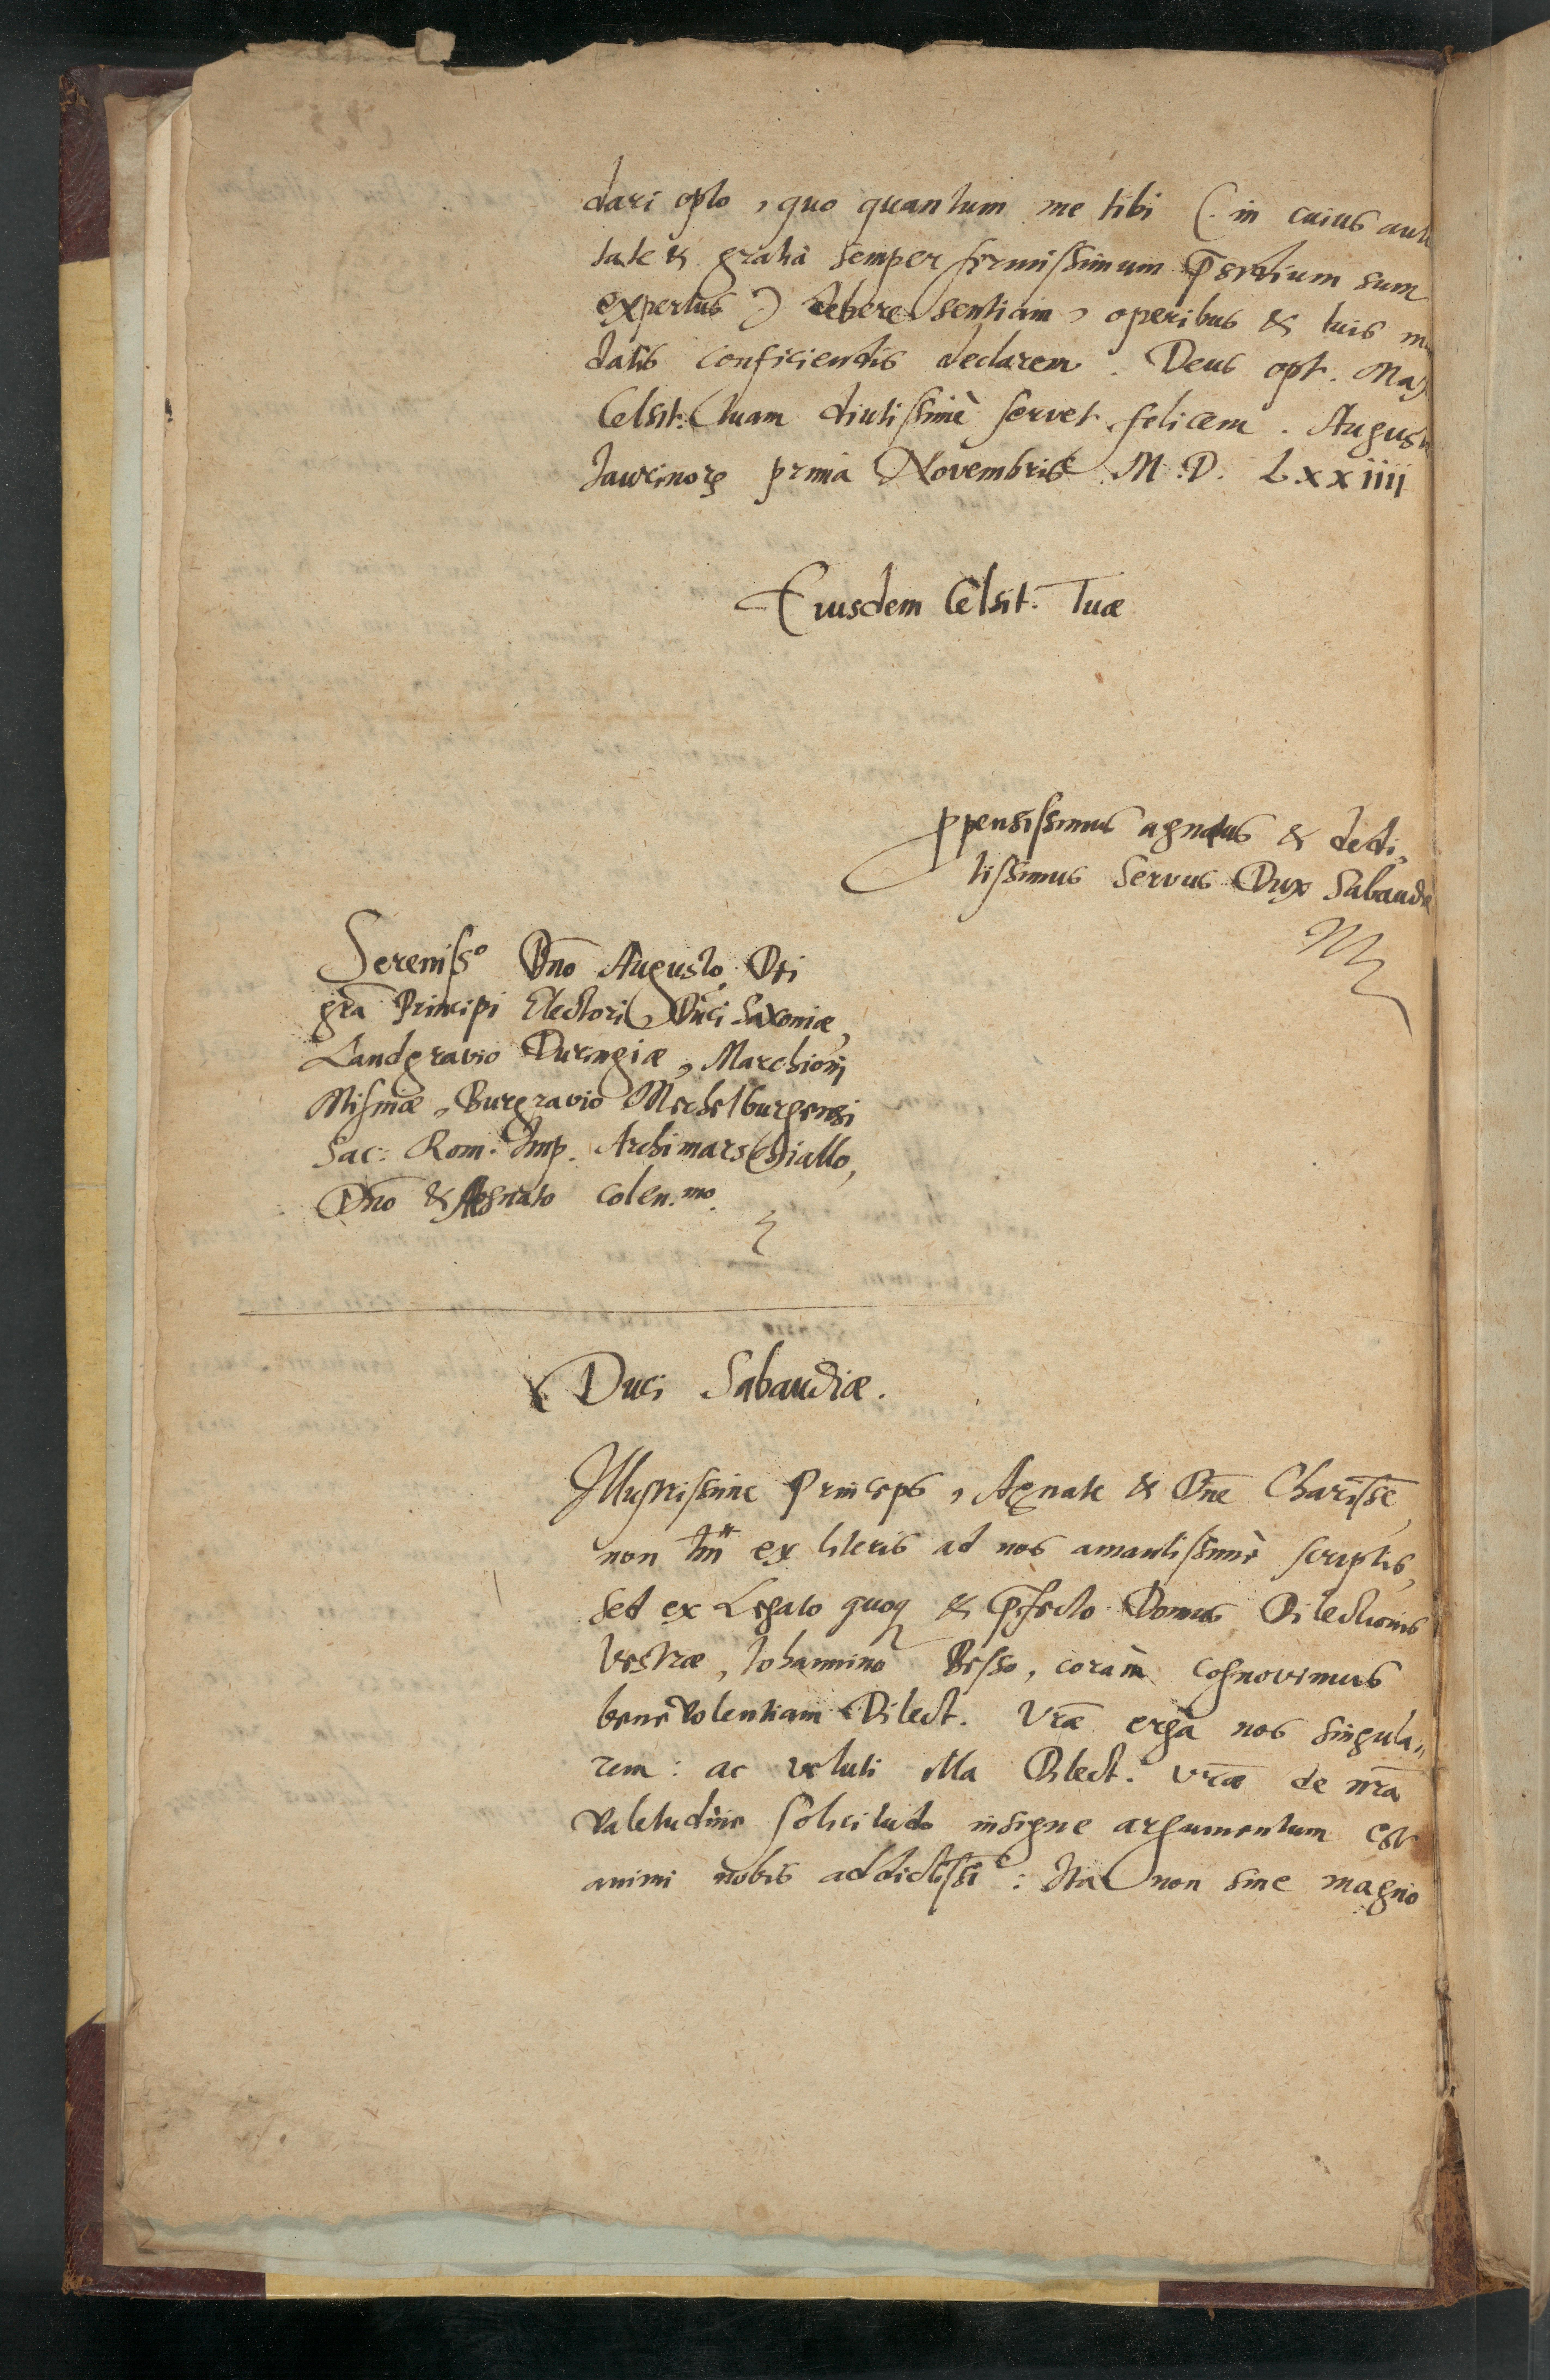 dari opto, quo quantum me tibi (. in cuius aut
tate & gratia semper firmissimum p̄sidium sum
expertus .) debere sentiam, operibus & tuis m
datis conficiendis declarem. Deus opt. Max
Celsit: tuam diutissimè servet felicem. August
Taurinorꝫ prima Novembris M.D.Lxxiiij
Eiusdem Celsit. Tuæ
ꝓpensissimus agnatus & dedi,
tissimus servus Dux Sabaudiæ
Sereniss.o Dn̄o Augusto Dei
gr̄a Principi Electori Duci Saxoniæ,
Landgravio Duringiæ, Marchioni
Misniæ, Burgravio Mechelburgensi
Sac: Rom: Imp. Archimarschiallo,
Dn̄o & Agnato colen.mo.
Duci Sabaudiæ.
Illustrissime Princeps, Agnate & Dn̄e Chariss̄e,
non tm̄ ex literis ad nos amantissimè scriptis,
sed ex Legato quoqꝫ & p̄fecto Domus Dilectionis
Vestræ, Iohannino Besso, coràm cognovimus
benevolentiam Dilect. Vr̄æ erga nos singula„
rem: ac veluti illa Dilect. vr̄æ de nr̄a
valetudine solicitudo insigne argumentum est
animi nobis addictiss̄i: Ita non sine magno